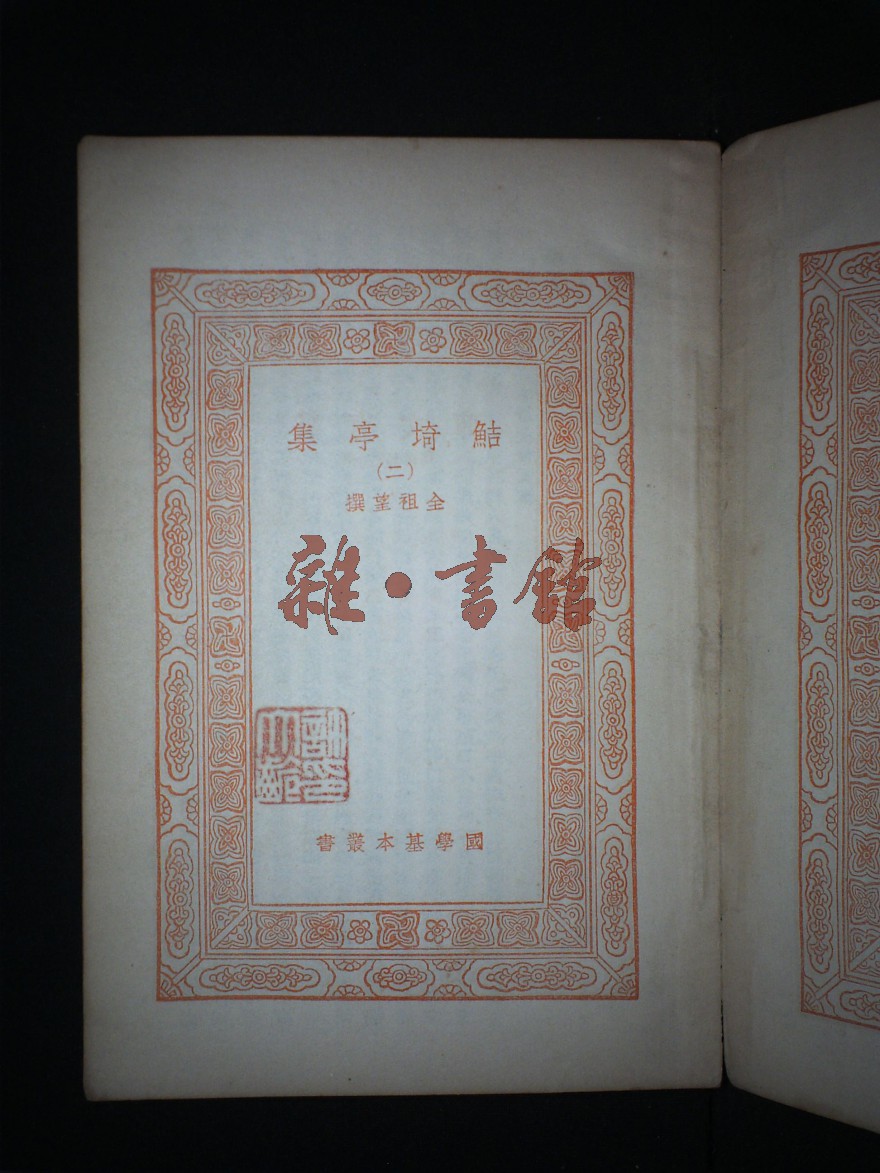 鮚埼亭集
（二）
全祖望撰
雜·書館
國學基本叢書